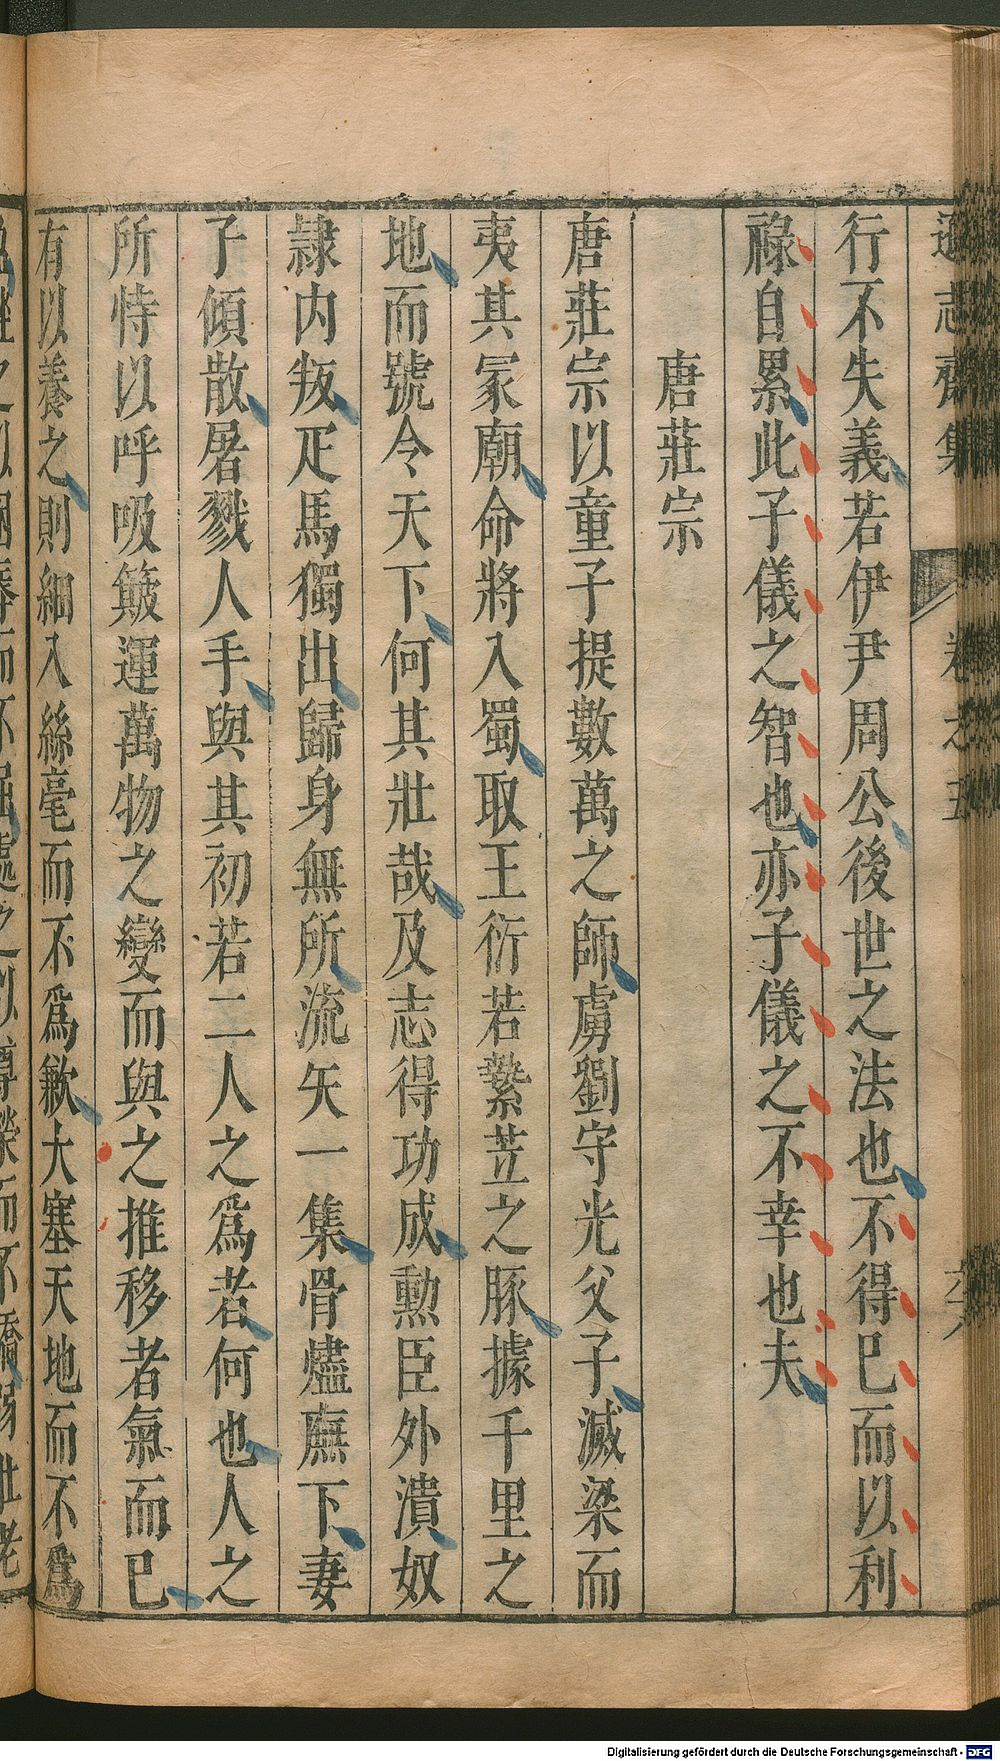 遜志齋集 卷之五 六十八
行不失義若伊尹周公後世之法也不得已而以利
祿自累此子儀之智也亦子儀之不幸也夫
唐莊宗
唐莊宗以童子提數萬之師虜劉守光父子滅梁而
夷其冢廟命將入蜀取王衍若縶苙之豚據千里之
地而號令天下何其壯哉及志得功成勲臣外潰奴
隷内叛疋馬獨出歸身無所流矢一集骨燼廡下妻
子傾散屠戮人手與其初若二人之爲者何也人之
所恃以呼吸簸運萬物之變而與之推移者氣而已
有以養之則細入絲毫而不爲歉大塞天地而不爲
Digitalisierung gefördert durch die Deutsche Forschungsgemeinschaft - DFG